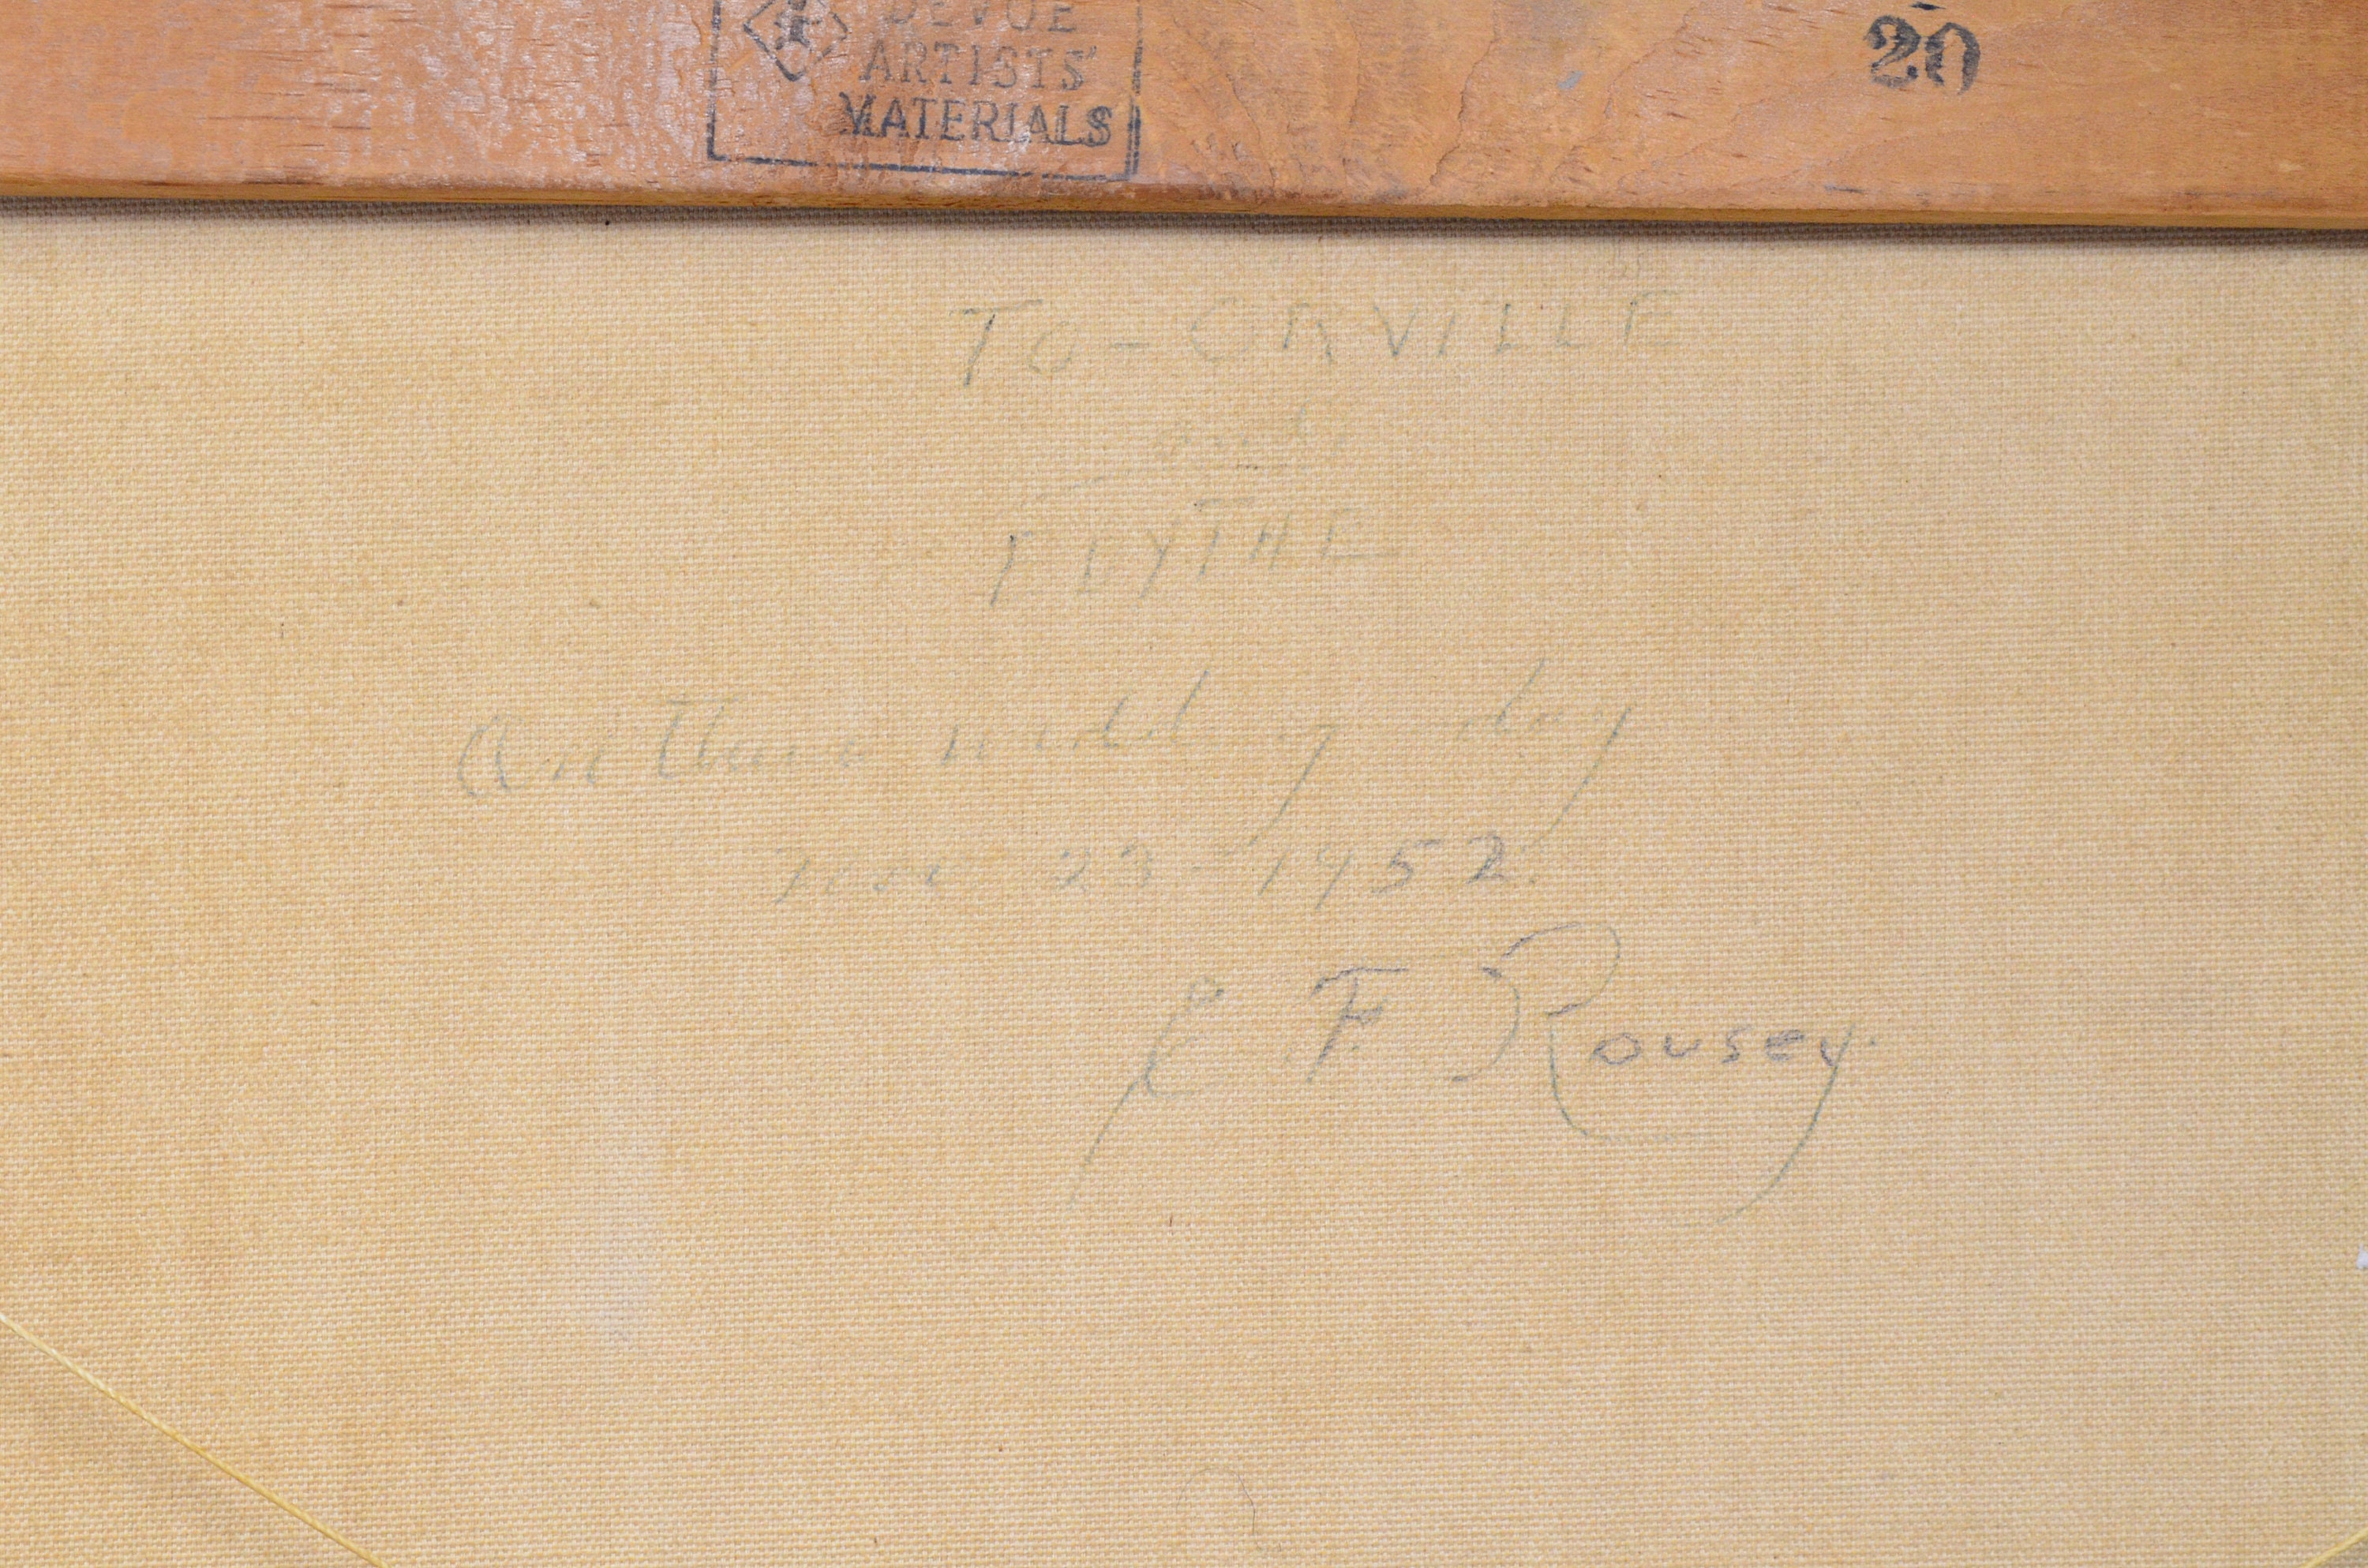 DEVOE
ARTISTS'
MATERIALS
20
TO - ORVILLE
and
On their wedding day
23 - 1952.
E F Rousey.